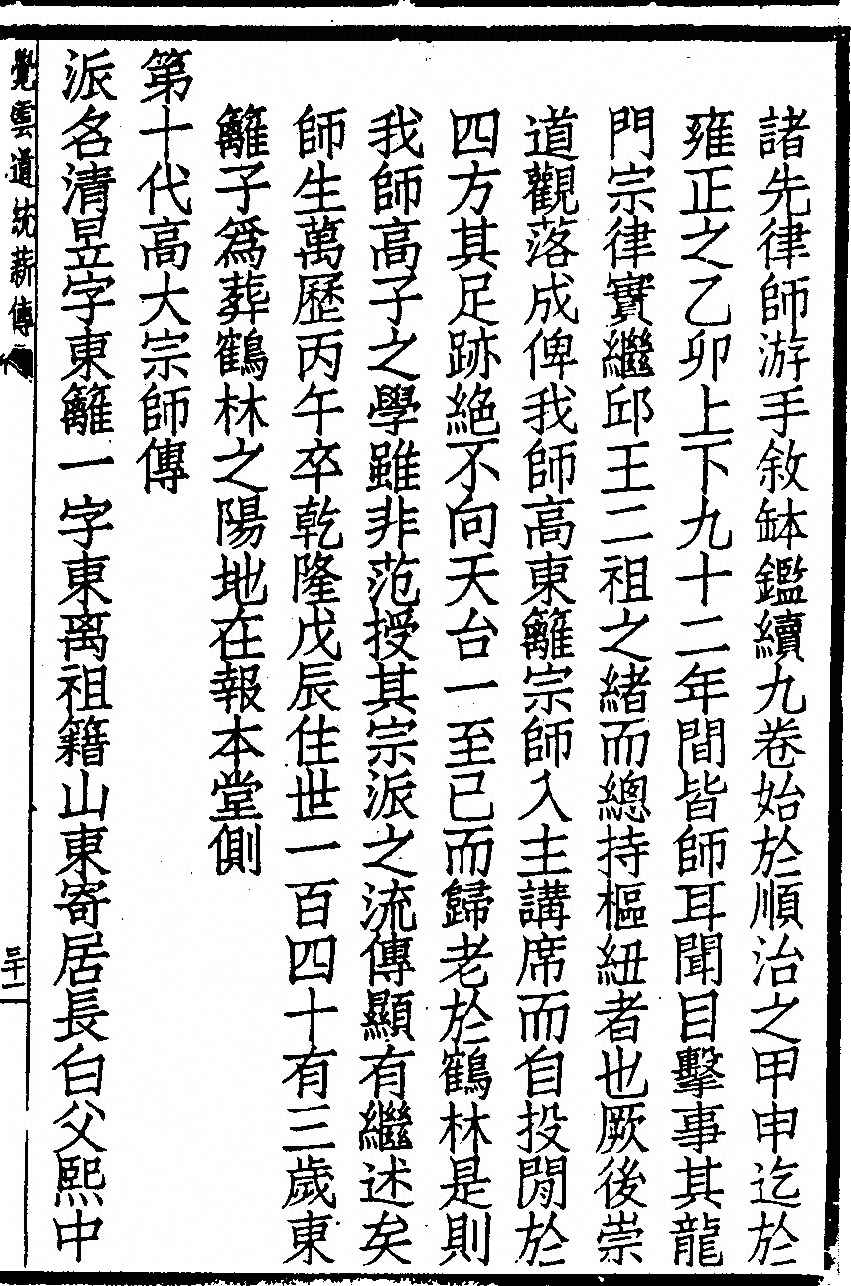 諸先律師游手敘缽鑑續九卷始於順治之甲申迄於
雍正之乙卯上下九十二年間皆師耳聞目擊事其龍
門宗律寶繼邱王二祖之緒而總持樞紐者也厥後崇
道觀落成俾我師高東籬宗師入主講席而自投閒於
四方其足跡絕不向天台一至已而歸老於鶴林是則
我師高子之學雖非范授其宗派之流傳顯有繼述矣
師生萬歷丙午卒乾隆戊辰住世一百四十有三歲東
籬子爲葬鶴林之陽地在報本堂側
第十代高大宗師傳
派名清昱字東籬一字東离祖籍山東寄居長白父熙中
覺雲道統薪傳
三十二